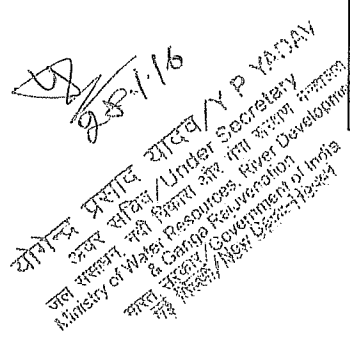 28.1.16
योगेन्द्र प्रसाद यादव/Y P YADAV
अवर सचिव/Under Secretary
जल संसाधन, नदी विकास और गंगा संरक्षण मंत्रालय
Ministry of Water Resources, River Development
& Ganga Rejuvenation
भारत सरकार/Government of India
नई दिल्ली/New Delhi